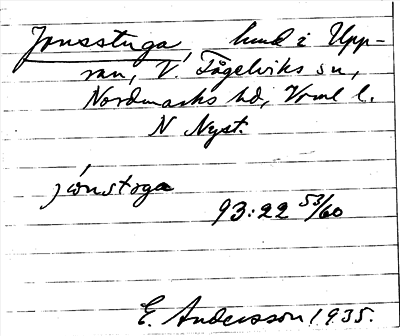 Jonsstuga, hmd i Upp-
ran, V. Fågelviks sn,
Nordmarks hd, Vrml l.
N Nyst.
jo̕nstoga
93:22 53/60
E. Andersson 1935.